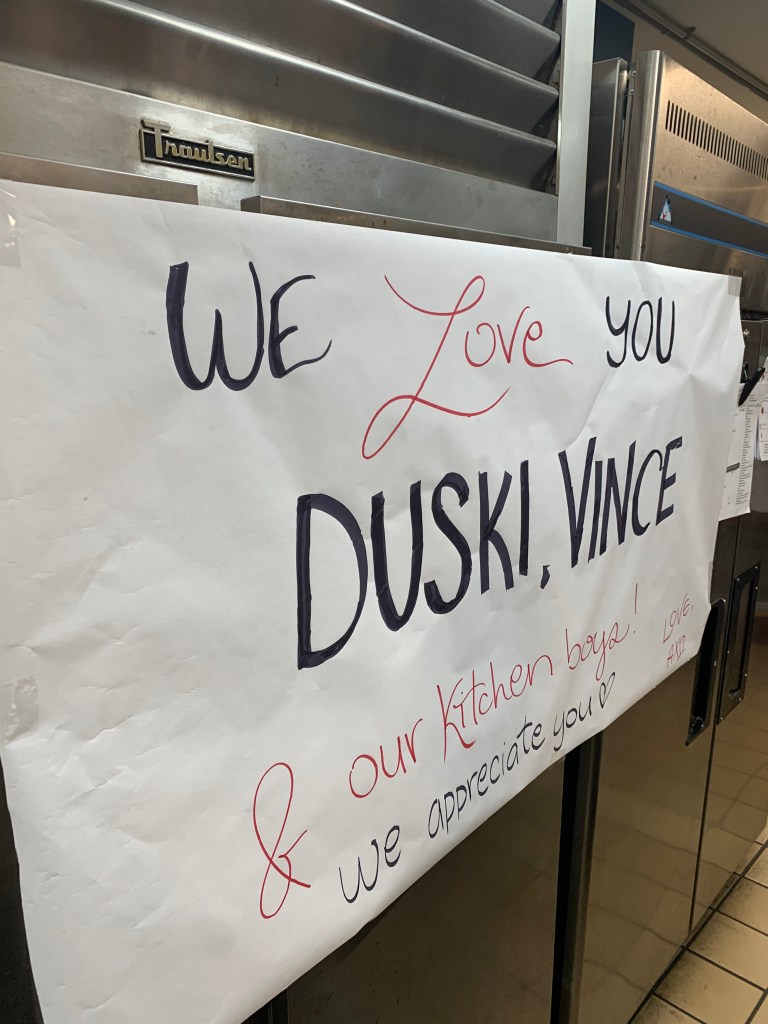 Traulsen
WE Love YOU
DUSKI, VINCE
& our kitchen boys!
we appreciate you♡
LOVE,
AXΩ